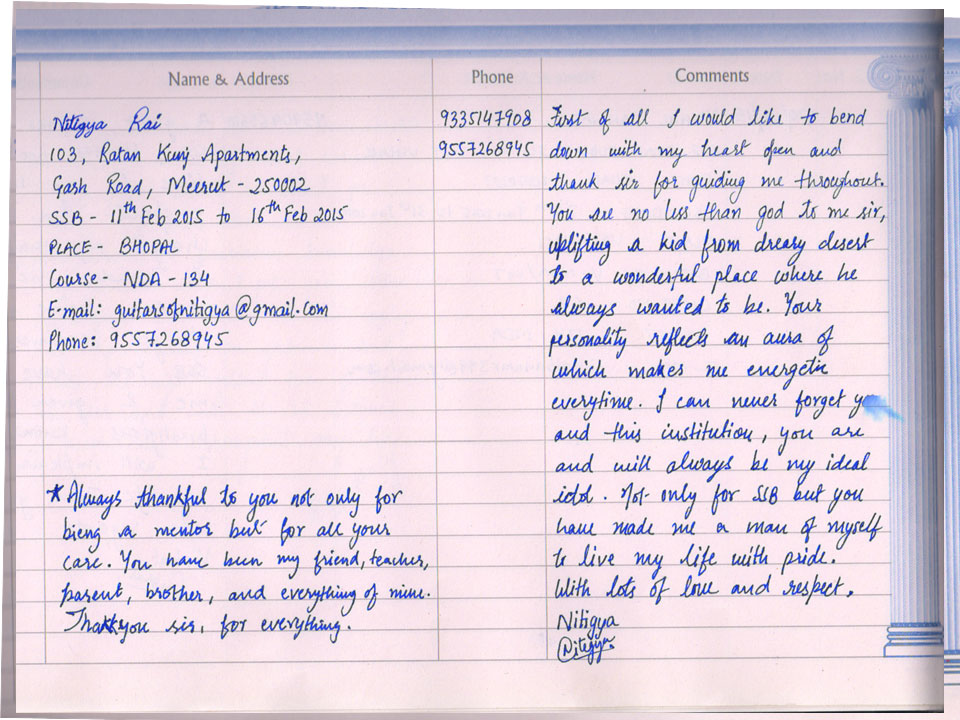 Name & Address
Phone
Comments
Nitigya Rai
103, Ratan Kunj Apartments,
Garh Road, Meerut - 250002
SSB - 11th Feb 2015 to 16th Feb 2015
PLACE - BHOPAL
Course - NDA - 134
E-mail: guitarsofnitigya@gmail.com
Phone: 9557268945
*Always thankful to you not only for
bieng a mentor but for all your
care. You have been my friend, teacher,
parent, brother, and everything of mine.
Thankyou sir, for everything.
9335147908
9557268945
First of all I would like to bend
down with my heart open and
thank sir for guiding me throughout.
You are no less than god to me sir,
uplifting a kid from dreary desert
to a wonderful place where he
always wanted to be. Your
personality reflects an aura of
which makes me energetic
everytime. I can never forget you
and this institution, you are
and will always be my ideal
idol. Not only for SSB but you
have made me a man of myself
to live my life with pride.
With lots of love and respect.
Nitigya
Nitigya